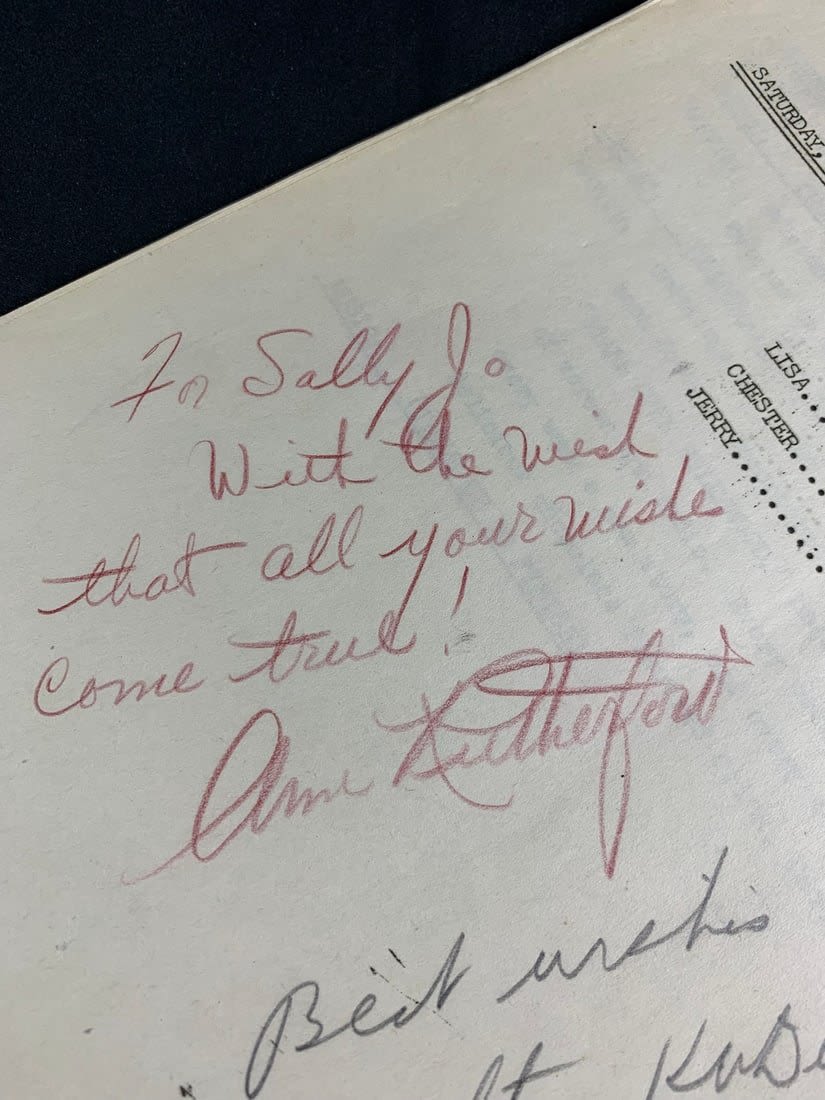 SATURDAY,
LISA....
CHESTER....
JERRY..........
For Sally Jo
With the wish
that all your wishe
come true!
Ann Rutherford
Best wishes